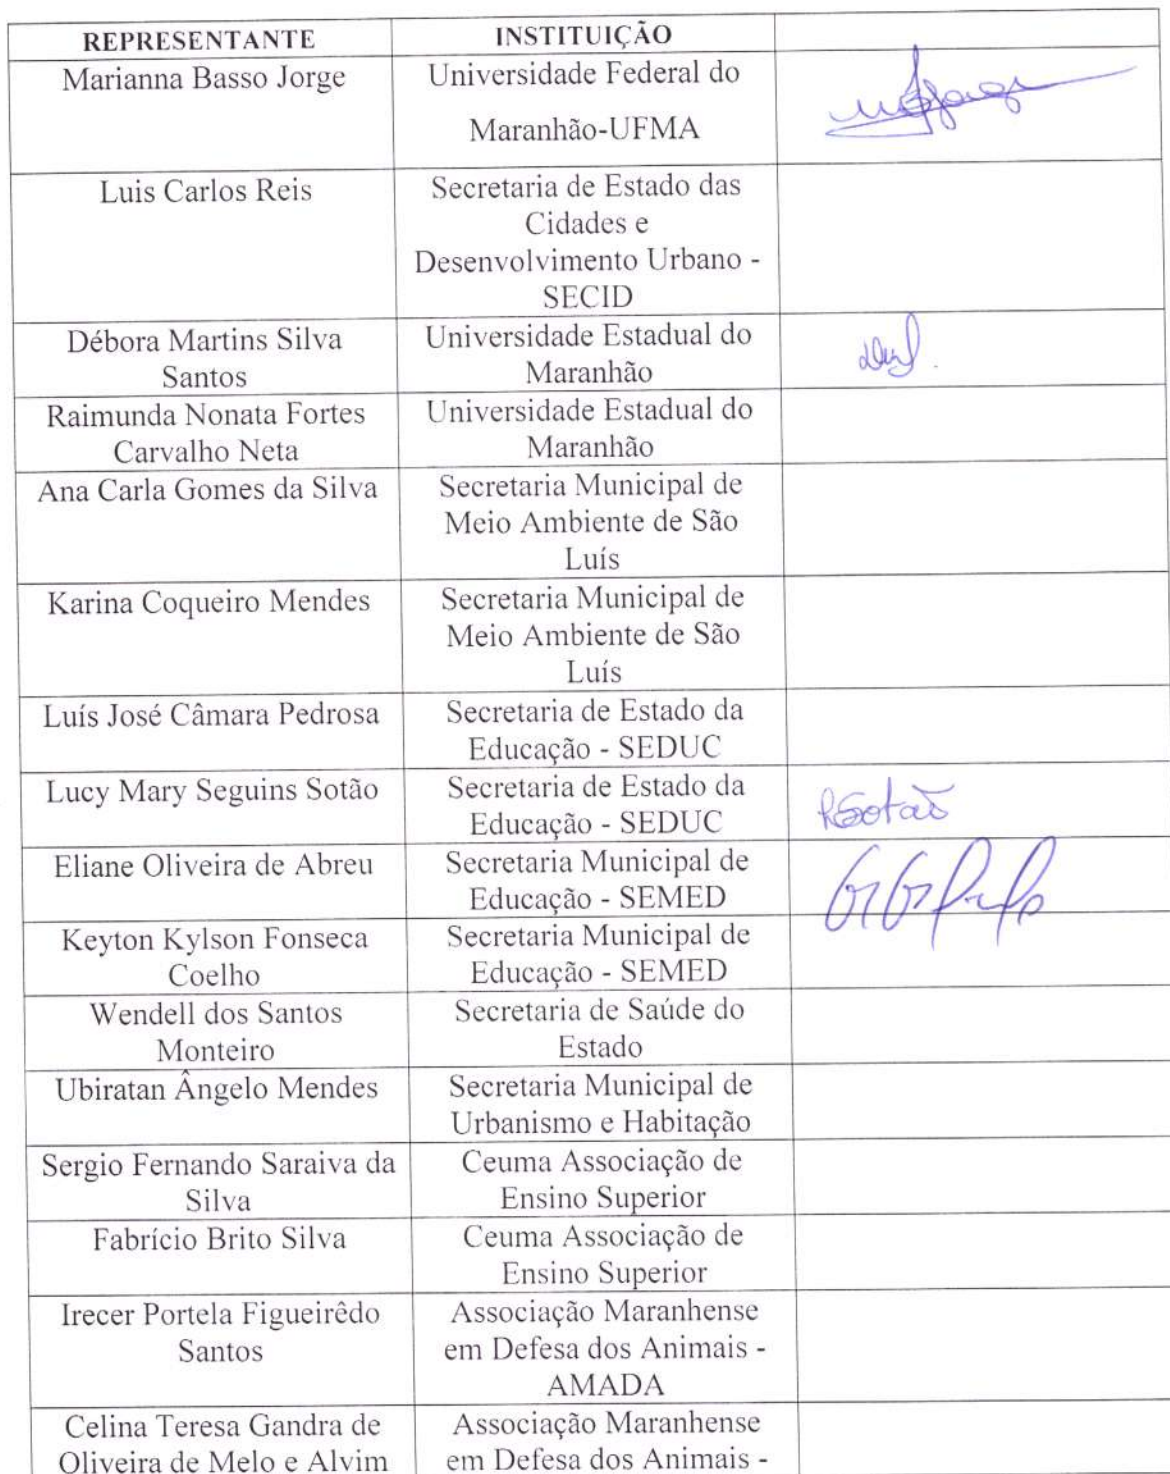 REPRESENTANTE
INSTITUIÇÃO
Marianna Basso Jorge
Universidade Federal do
Maranhão-UFMA
Luis Carlos Reis
Secretaria de Estado das
Cidades e
Desenvolvimento Urbano -
SECID
Débora Martins Silva
Santos
Universidade Estadual do
Maranhão
Raimunda Nonata Fortes
Carvalho Neta
Universidade Estadual do
Maranhão
Ana Carla Gomes da Silva
Secretaria Municipal de
Meio Ambiente de São
Luís
Karina Coqueiro Mendes
Secretaria Municipal de
Meio Ambiente de São
Luís
Luís José Câmara Pedrosa
Secretaria de Estado da
Educação - SEDUC
Lucy Mary Seguins Sotão
Secretaria de Estado da
Educação - SEDUC
Eliane Oliveira de Abreu
Secretaria Municipal de
Educação - SEMED
Keyton Kylson Fonseca
Coelho
Secretaria Municipal de
Educação - SEMED
Wendell dos Santos
Monteiro
Secretaria de Saúde do
Estado
Ubiratan Ângelo Mendes
Secretaria Municipal de
Urbanismo e Habitação
Sergio Fernando Saraiva da
Silva
Ceuma Associação de
Ensino Superior
Fabrício Brito Silva
Ceuma Associação de
Ensino Superior
Irecer Portela Figueirêdo
Santos
Associação Maranhense
em Defesa dos Animais -
AMADA
Celina Teresa Gandra de
Oliveira de Melo e Alvim
Associação Maranhense
em Defesa dos Animais -